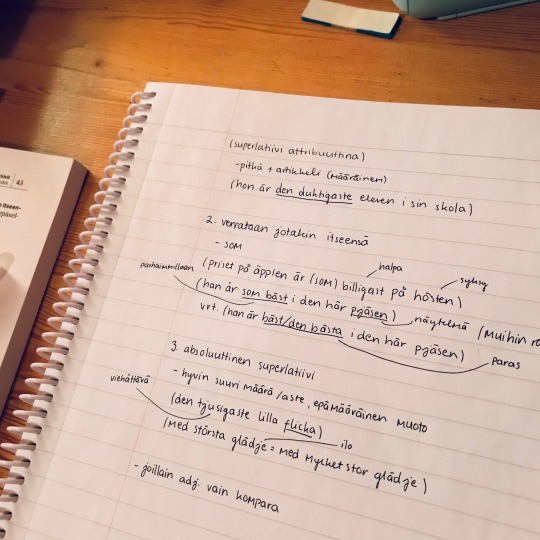 43
(superlatiivi attribuuttina)
-pitkä + artikkeli (määräinen)
(han är den duktigaste eleven i sin skola)
2. verrataan jotakin itseensä
- som
halpa
(priset på äpplen är (som) billigast på hösten)
syksy
parhaimmillaan
(han är som bäst i den här pjäsen)
näytelmä (Muihin
vrt. (han är bäst/den bästa i den här pjäsen)
paras
3. absoluuttinen superlatiivi
- hyvin suuri määrä/aste, epämääräinen muoto
viehättävä
(den tjusigaste lilla flicka)
(med största glädje = med mycket stor glädje)
ilo
- joillain adj. vain kompara